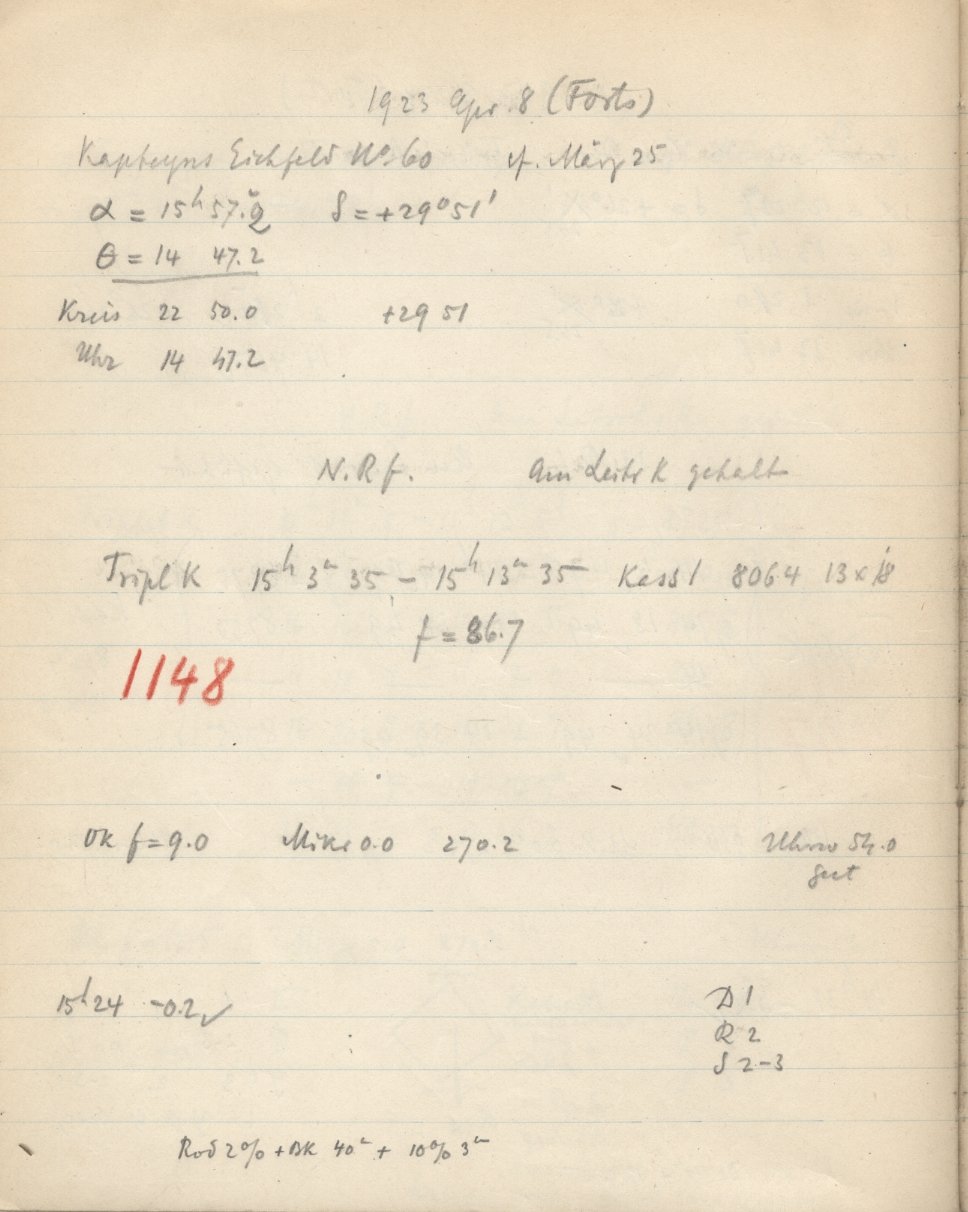 1923 Apr. 8 (Forts)
Kapteyns Eichfeld No 60 cf. März 25
α = 15h 57.2 δ = +29° 51'
θ = 14 47.2
Kreis 22 50.0 +29 51
Uhr 14 47.2
N.R f. Am Leitr K gehalt
Tripl K 15h 3m 35 – 15h 13m 35 Kass 1 8064 13 x 18
f = 86.7
1148
OK f = 9.0 Mikr 0.0 270.2 Uhrw 54.0
gut
15h 24 -0.2 ✓
D 1
R 2
S 2-3
Rod 2% + BK 40m + 10% 3m